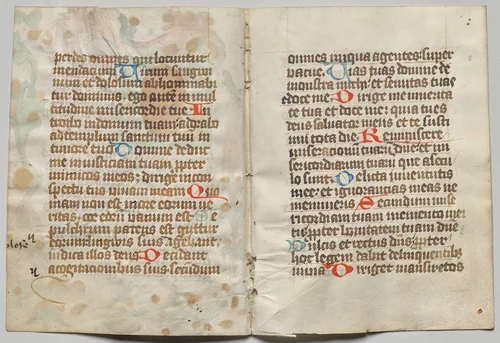 perdes omnes qui locuntur
mendacium Virum sangui
num et dolosum abhominabi
tur dominus: ego autē in mul
titudine misericordie tue In
troibo in domum tuam: adorabo
ad templum sanctum tuū in
timore tuo Domine deduc
me in iusticiam tuam ꝓpter
inimicos meos: dirige in con
spectu tuo viam meam Quo
niam non est in ore eorum ve
ritas: cor eorū vanum est Se
pulchrum patens est guttur
eorum linguis suis agebant:
iudica illos deus Decidant
a cogitationibus suis: secundum
omnes iniqua agentes: super
vacue Vias tuas domine de
monstra michi: et semitas tuas
edoce me Dirige me in verita
te tua et doce me: quia tu es
deus salvator meus et te susti
nui tota die Reminiscere
miseracionū tuarū dn̄e: et mi
sericordiarum tuarū que a secu
lo sunt Delicta iuventutis
mee: et ignorancias meas ne
memineris Secundum mise
ricordiam tuam memento mei
tu: ꝓpter bonitatem tuam dn̄e
Dulcis et rectus dn̄s: ꝓpter
hoc legem dabit delinquentibꝰ
in via Diriget mansuetos